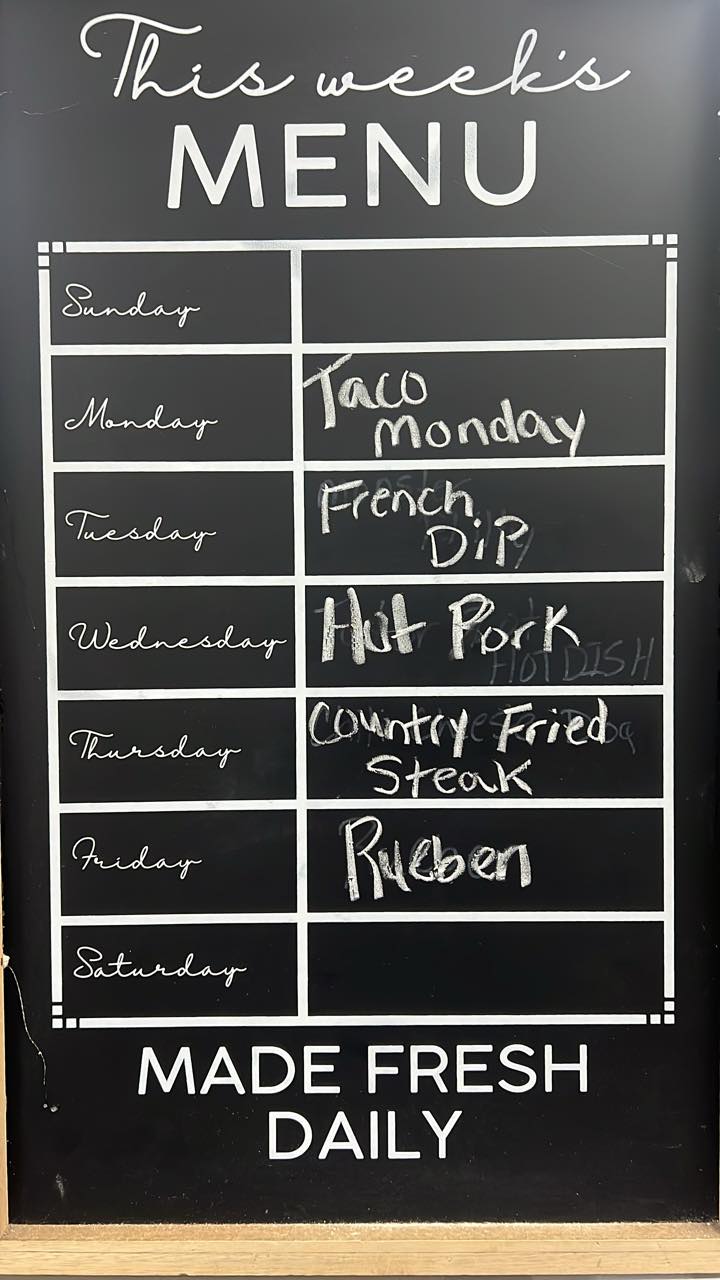 This week's
MENU
Sunday
Monday
Taco
Monday
Tuesday
French
DiP
Wednesday
Hut Pork
HOT DISH
Thursday
Country Fried
Steak
Friday
Rueben
Saturday
MADE FRESH
DAILY